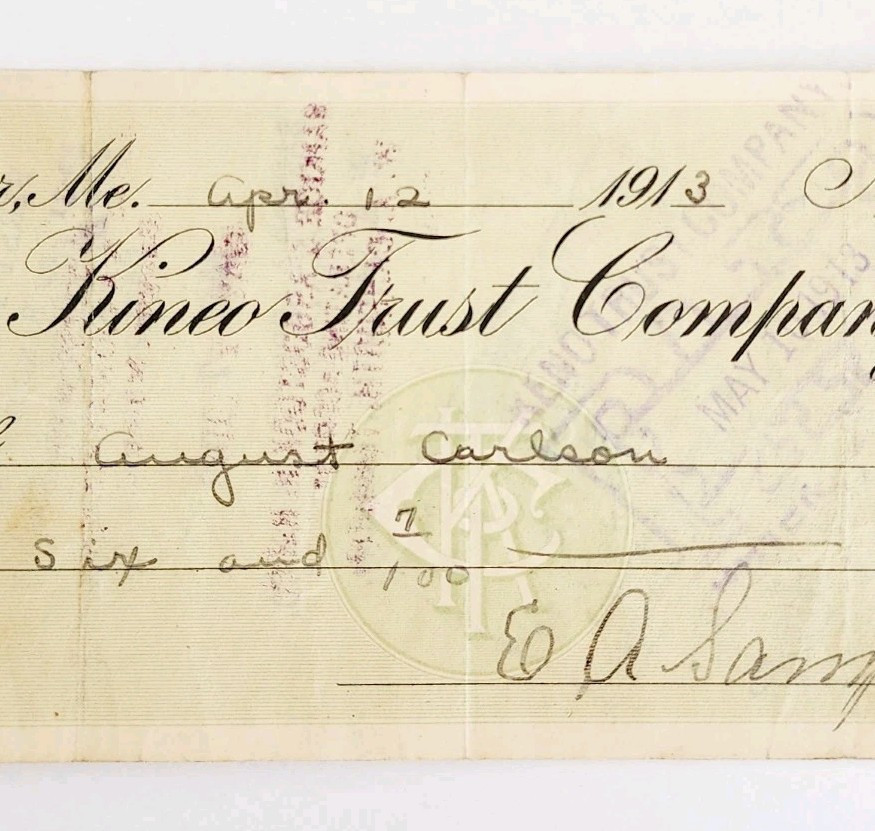 Me. Apr. 12 1913
Kineo Trust Company
August Carlson
Six and 7/100
E A Samp
TRUST COMPANY
MAY 1913